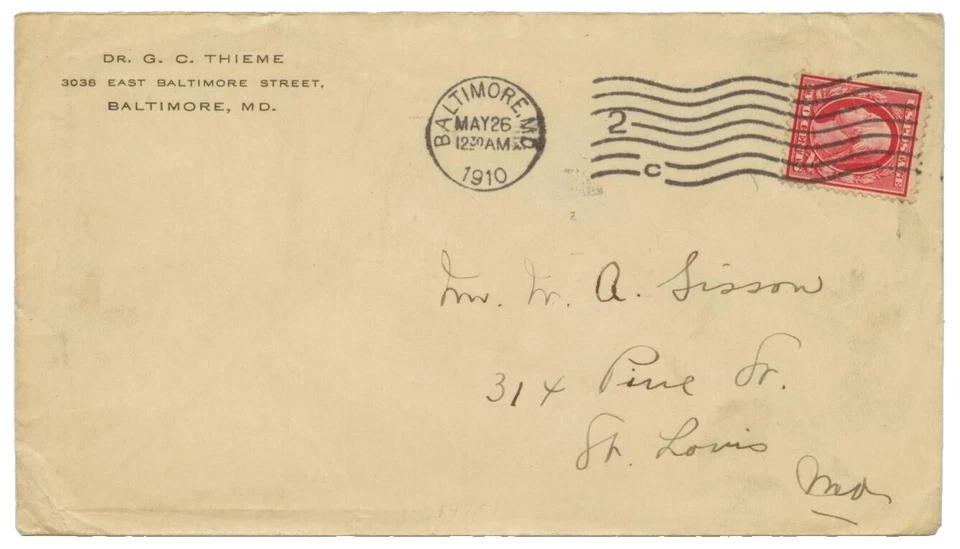 DR. G. C. THIEME
3038 EAST BALTIMORE STREET,
BALTIMORE, MD.
BALTIMORE, MD.
MAY 26
12 30 AM
1910
2
C
Mr. W. A. Sisson
314 Pine St.
St. Louis
Mo.